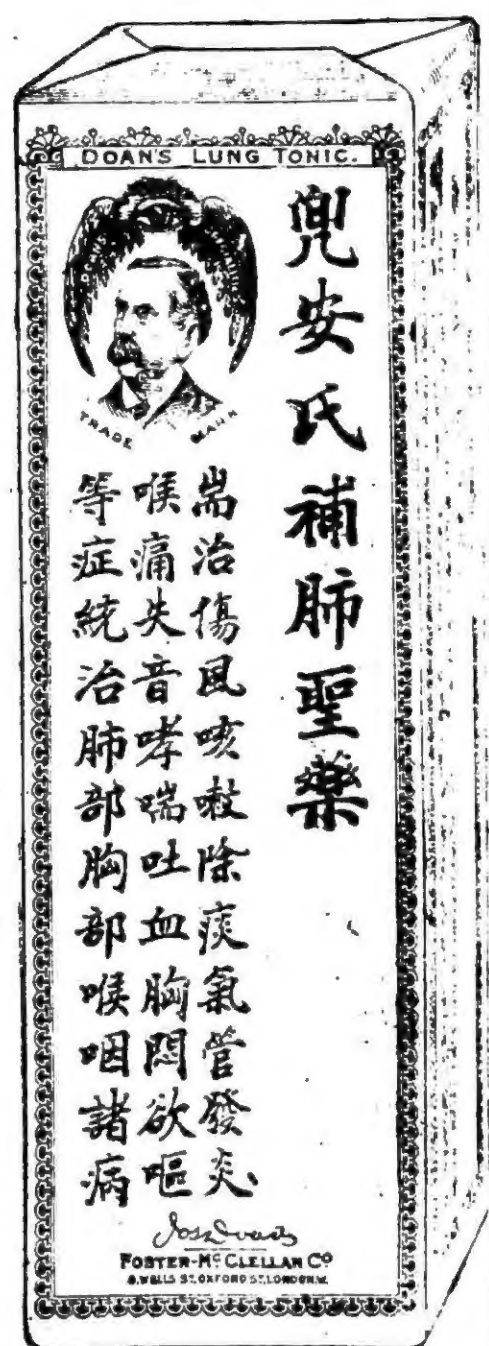 DOAN'S LUNG TONIC.
兜安氏補肺聖藥
TRADE MARK
耑治傷風咳嗽除痰氣管發炎
喉痛失音哮喘吐血胸悶欲嘔
等症統治肺部胸部喉咽諸病
FOSTER-McCLELLAN Co
8, WELLS ST. OXFORD ST. LONDON, W.